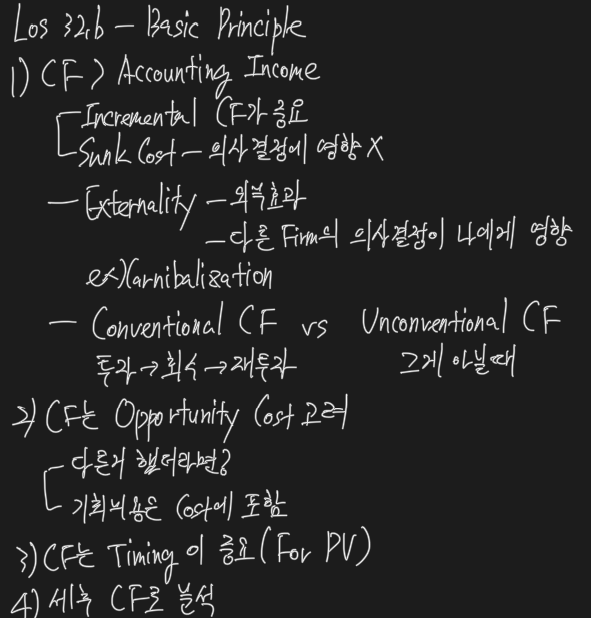 Los 32.b – Basic Principle
1) CF > Accounting Income
Incremental CF가 중요
Sunk Cost – 의사결정에 영향 X
– Externality – 외부효과
– 다른 Firm의 의사결정이 나에게 영향
ex) Carnibalization
– Conventional CF vs Unconventional CF
투자→회수→재투자 그게 아닐때
2) CF는 Opportunity Cost 고려
다른거 했더라면?
기회비용은 Cost에 포함
3) CF는 Timing이 중요 (For PV)
4) 세후 CF로 분석